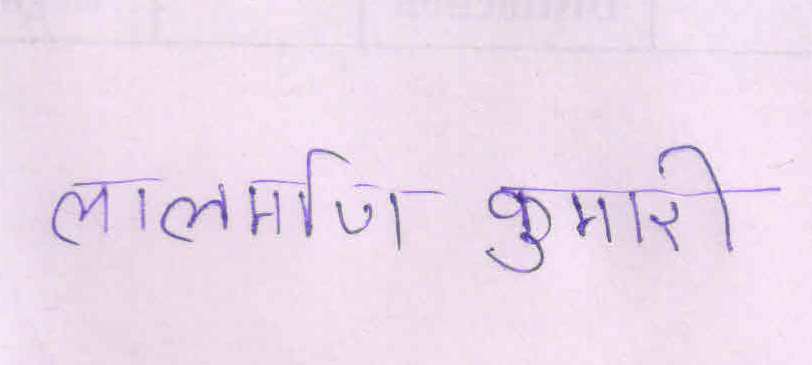 लालमणि कुमारी